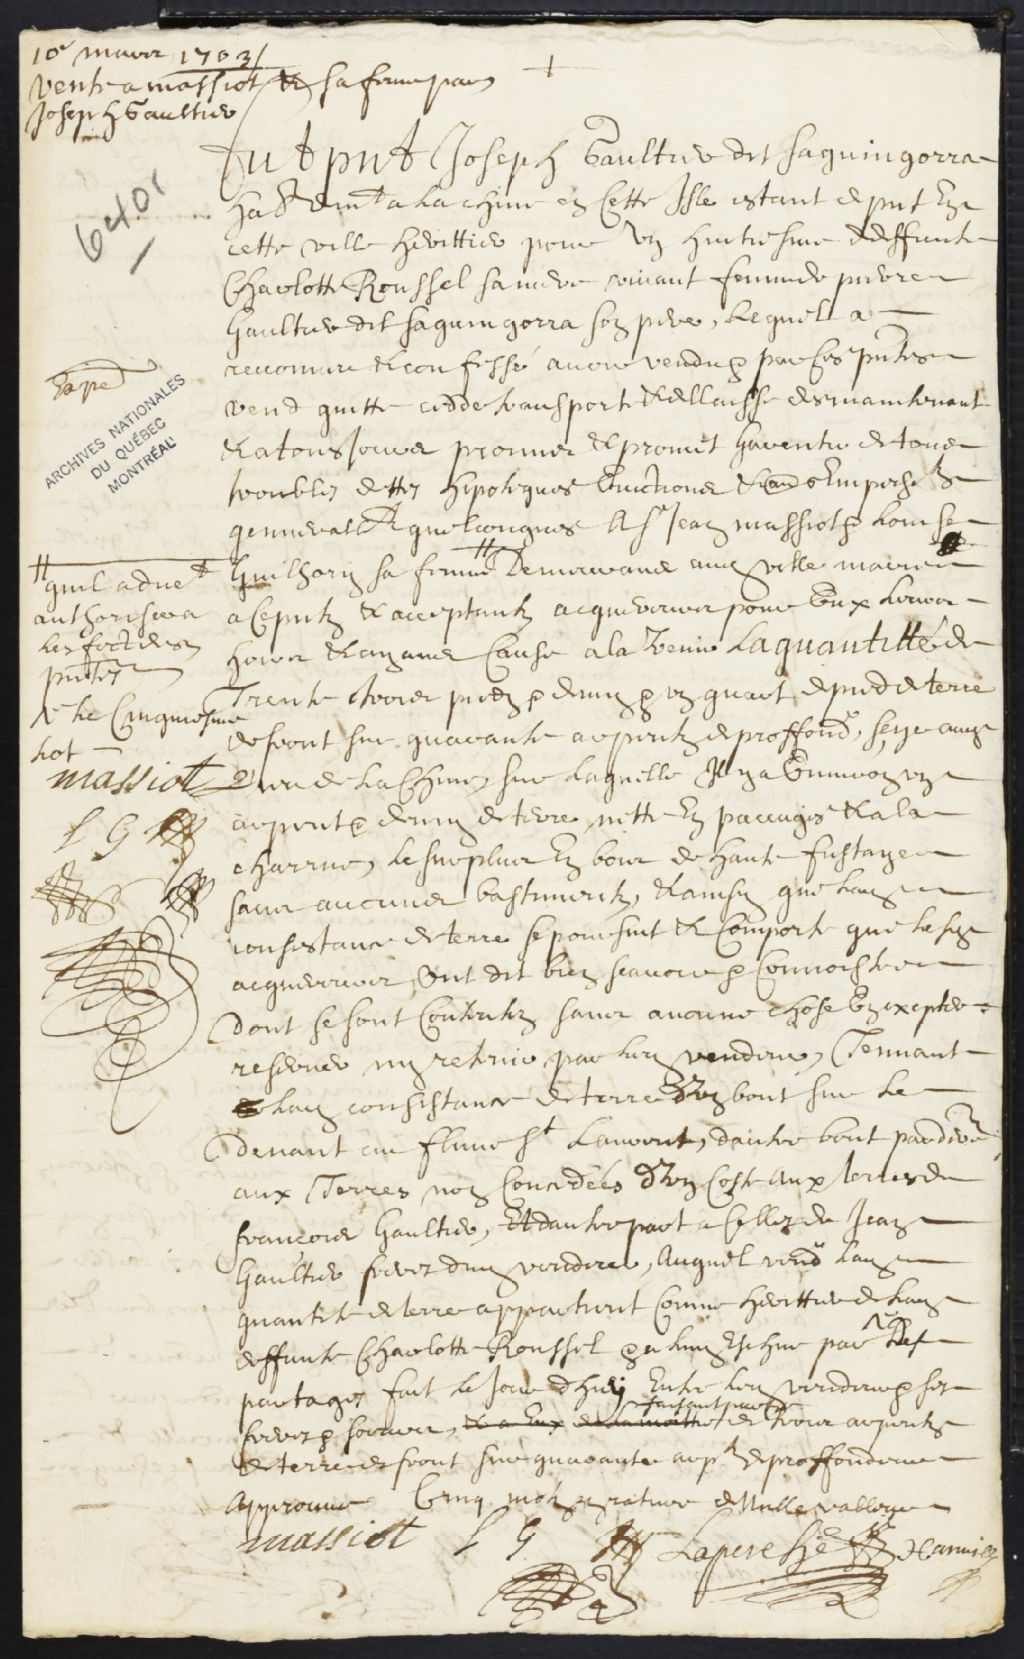 10e mars 1703
vente a massiot & sa femme par
Joseph Gaultier
6401
Expe
ARCHIVES NATIONALES
DU QUÉBEC
MONTRÉAL
Fut pnt Joseph Gaultier dit saguingorra
habt demt a Lachine en Cette Isle estant de pnt En
cette ville herittier pour un huitiesme de deffunte
Charlotte Roussel sa mere vivant femme de pierre
Gaultier dit saguingorra son pere, Lequel a
recconnu & confessé avoir vendu & par Ces pntes
vend quitte cedde transporte & dellaisse des maintenant
& a tousjours promis & promet garentir de tous
troubles dettes hipoteques Evictions & Empeschts
generallt quelconques A Sr Jean massiot & Louise
Guilhorij sa femme Demeurans aud ville marie
a Ce pnts & acceptants acquereurs pour Eux Leurs
hoirs & ayans Cause a lavenir La quantitté de
Trente trois pieds & demy & un quart de pied de terre
de front sur quarante arpents de proffondr, seize aud
Lieu de La Chine, sur Laquelle Il y a Environ un
arpent & demy de terre nette En paccages & a la
charrue, Le surplus En bois de haute fustaye
sans aucuns bastiments, & ainsy que lad
consistance de terre se poursuit & Comporte que lesd
acquereurs Ont dit bien scavoir & Connoistre
Dont se sont Contentez sans aucune chose En excepter
reserver ny retenir par led vendeur, Tennant
lad consistance de terre d'un bout sur le
Devant au fleuve St Laurent, dautre bout par derre
aux Terres non Concedées d'un Costé aux terres de
francois Gaultier, Et dautre part a Celles de Jean
Gaultier freres dud vendeur, Auquel vendr lad
quantité de terre appartient Comme herittier de lad
deffunte Charlotte Roussel & a luy Eschue par
partages fait Le Jour d'huy Entre led vendeur & ses
freres & soeurs, faisant partie de trois arpents
de terre de front sur quarante arpts de proffondeur
Approuvé Cinq mots en rature de Nulle valleur
massiot L G Lapereche Adhemar
quil a duet
authorisera
Les
pntes
& Le Cinquiesme
Lot
massiot
L G